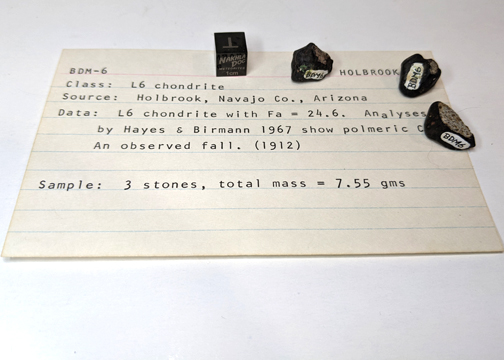 BDM-6
HOLBROOK
Class: L6 chondrite
Source: Holbrook, Navajo Co., Arizona
Data: L6 chondrite with Fa = 24.6. Analyses
by Hayes & Birmann 1967 show polmeric C
An observed fall. (1912)
Sample: 3 stones, total mass = 7.55 gms
T
NAKHLA
DOG
METEORITES
1cm
BDM6
BDM6
BDM6